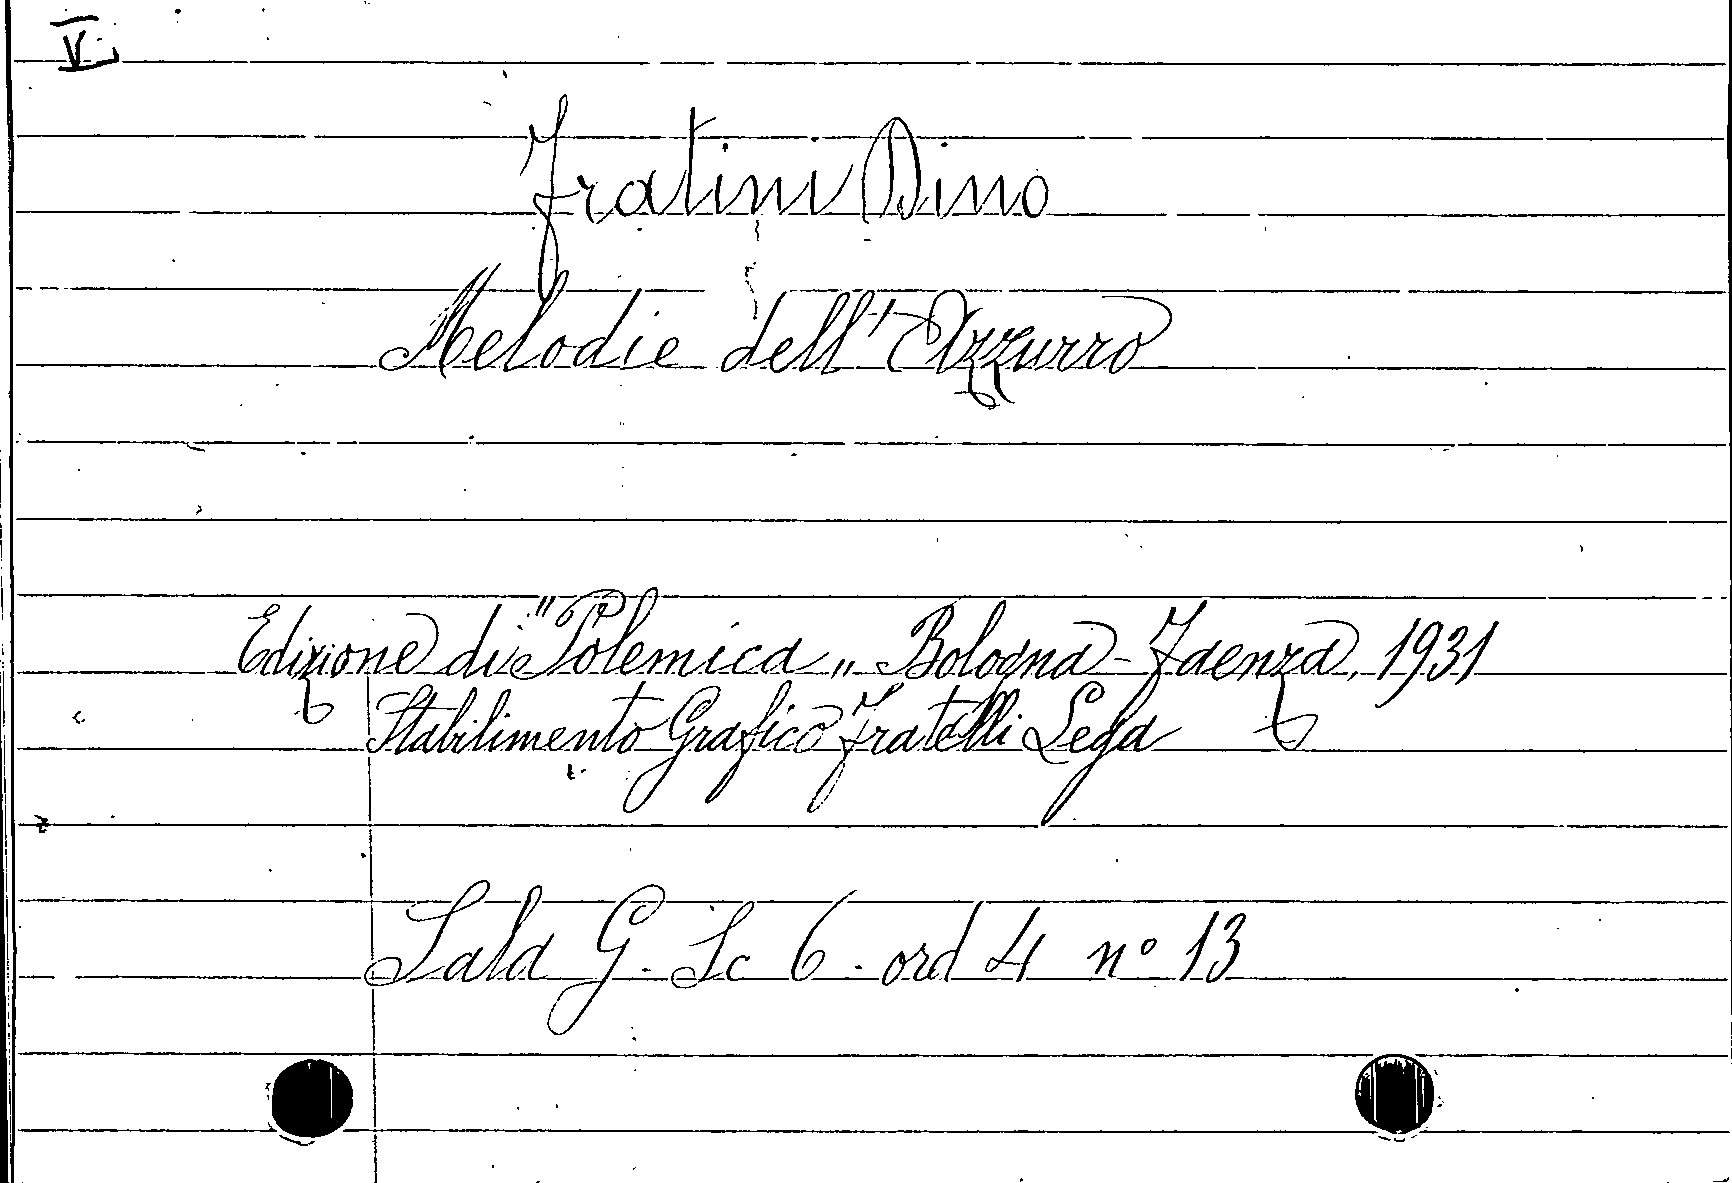 V.
Fratini Dino
Melodie dell'Azzurro
Edizione di "Polemica„ Bologna-Faenza, 1931
Stabilimento Grafico Fratelli Lega
Sala G. Sc 6. ord 4 n° 13